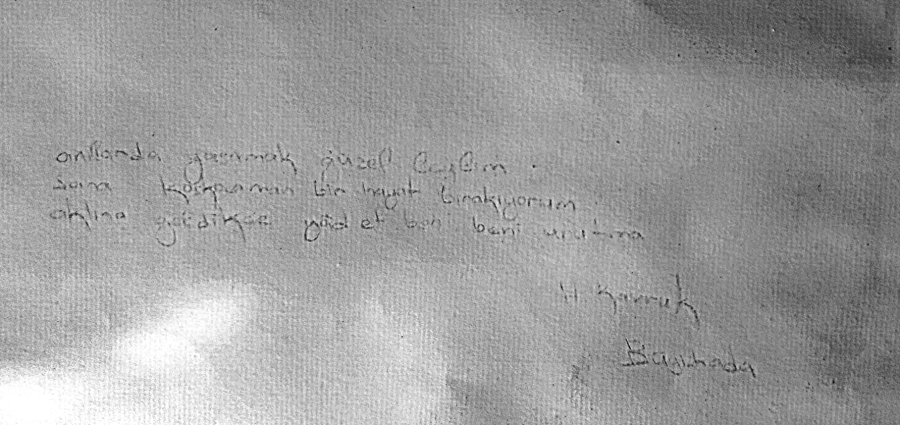 anılarda yaşamak güzel Ceylin
sana koskocaman bir hayat bırakıyorum
aklına geldikçe yâd et beni beni unutma
H. Kavruk
Büyükada